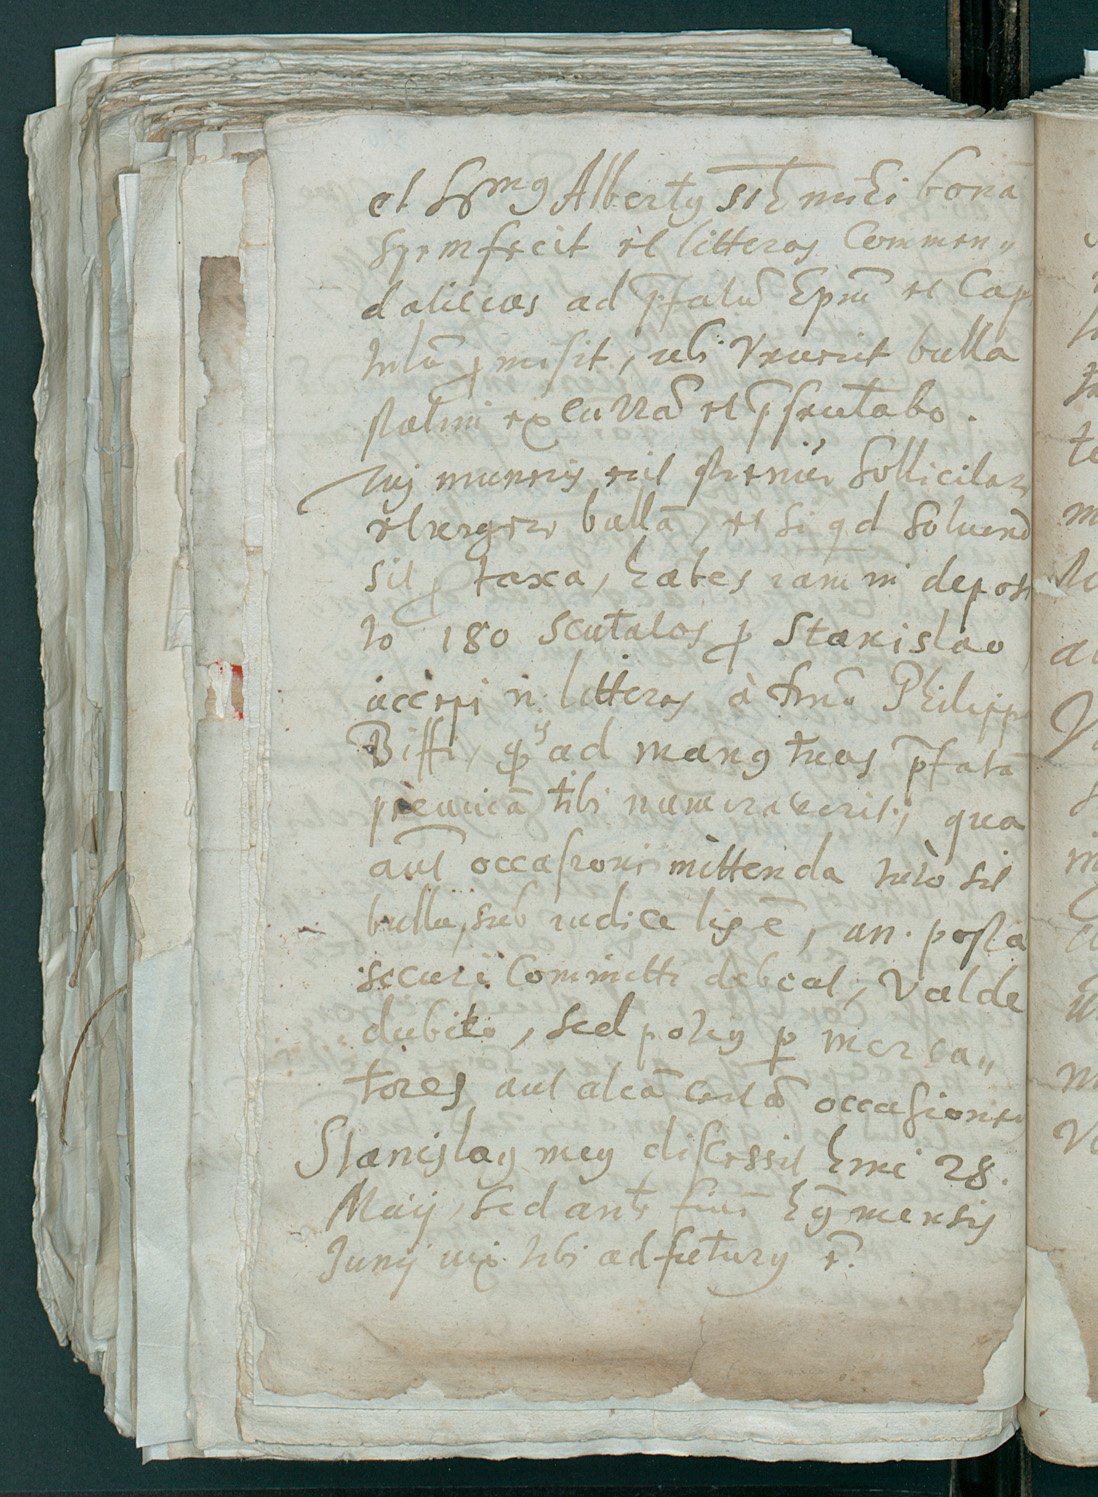 et Sermus Albertus sit mihi bonā
spem fecit et litteras Commen„
datitias ad p̄fatū Epūm et Cap
tulū ꝓmisit, ubi Venerit bulla
statim exeurrā et p̄sentabo.
Tuj muneris erit strenue sollicitare
et urgere bullā, et si qd soluend
sit ꝓ taxa, habes iam in deposi
to 180 scutatos ꝓ Stanislao,
accepi n. litteras à Dno Philippo
Biffi, qͥ ad manus tuas p̄fatā
pecuniā tibi numeraverit; qua
aut occasione mittenda tutò sit
bulla, sub iudice lis ē, an. posta
securè Committi debeat, Valde
dubito, sed potius ꝑ merca„
tores aut aliā certā occasionem
Stanislaus meus discessit hinc 28.
Maij, sed ante finē hus mensis
Junij vix tibi adfuturus ē.